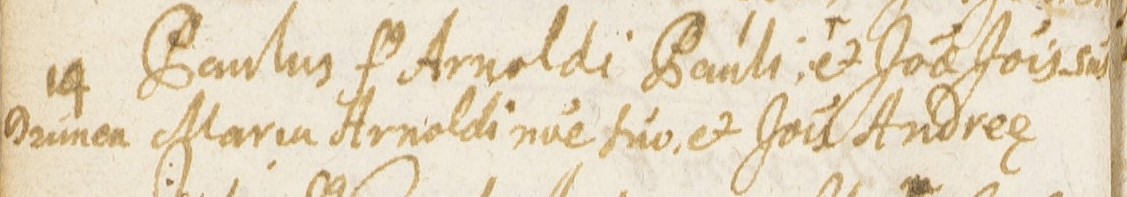 14 Paulus f Arnoldi Pauli et Joã Jois sus
Drunen Maria Arnoldi nõe suo, et Jois Andreę